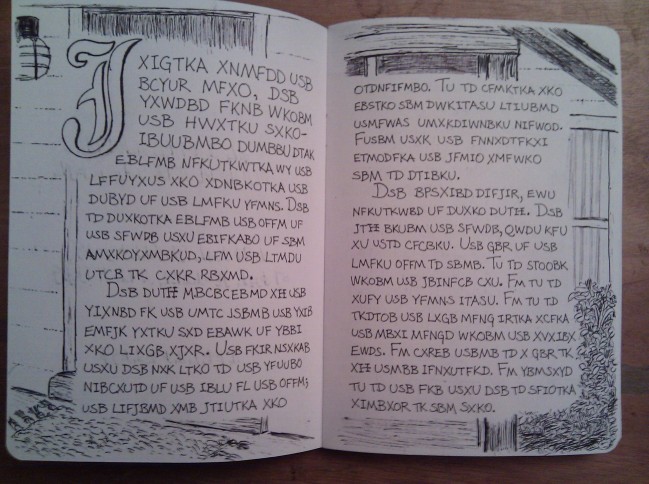 J
XIGTKA XNMFDD USB
BCYUR MFXO, DSB
YXWDBD FKNB WKOBM
USB HWXTKU SXKO-
IBUUBMBO DUMBBU DTAK
EBLFMB NFKUTKWTKA WY USB
LFFUYXUS XKO XDNBKOTKA USB
DUBYD UF USB LMFKU YFMNS. DSB
TD DUXKOTKA EBLFMB USB OFFM UF
USB SFWDB USXU EBIFKABO UF SBM
AMXKOYXMBKUD, LFM USB LTMDU
UTCB TK CXKR RBXMD.
DSB DUTII MBCBCEBMD XII USB
YIXNBD FK USB UMTC JSBMB USB YXIB
EMFJK YXTKU SXD EBAWK UF YBBI
XKO LIXGB XJXR. USB FKIR NSXKAB
USXU DSB NXK LTKO TD USB YFUUBO
NIBCXUTD UF USB IBLU FL USB OFFM;
USB LIFJBMD XMB JTIUTKA XKO
OTDNFIFMBO. TU TD CFMKTKA XKO
EBSTKO SBM DWKITASU LTIUBMD
USMFWAS UMXKDIWNBKU NIFWOD.
FUSBM USXK USB FNNXDTFKXI
ETMODFKA USB JFMIO XMFWKO
SBM TD DTIBKU.
DSB BPSXIBD DIFJIR, EWU
NFKUTKWBD UF DUXKO DUTII. DSB
JTII BKUBM USB SFWDB, QWDU KFU
XU USTD CFCBKU. USB GBR UF USB
LMFKU OFFM TD SBMB. TU TD STOOBK
WKOBM USB JBINFCB CXU. FM TU TD
XUFY USB YFMNS ITASU. FM TU TD
TKDTOB USB LXGB MFNG IRTKA XCFKA
USB MBXI MFNGD WKOBM USB XVXIBX
EWDS. FM CXREB USBMB TD X GBR TK
XII USMBB IFNXUTFKD. FM YBMSXYD
TU TD USB FKB USXU DSB TD SFIOTKA
XIMBXOR TK SBM SXKO.